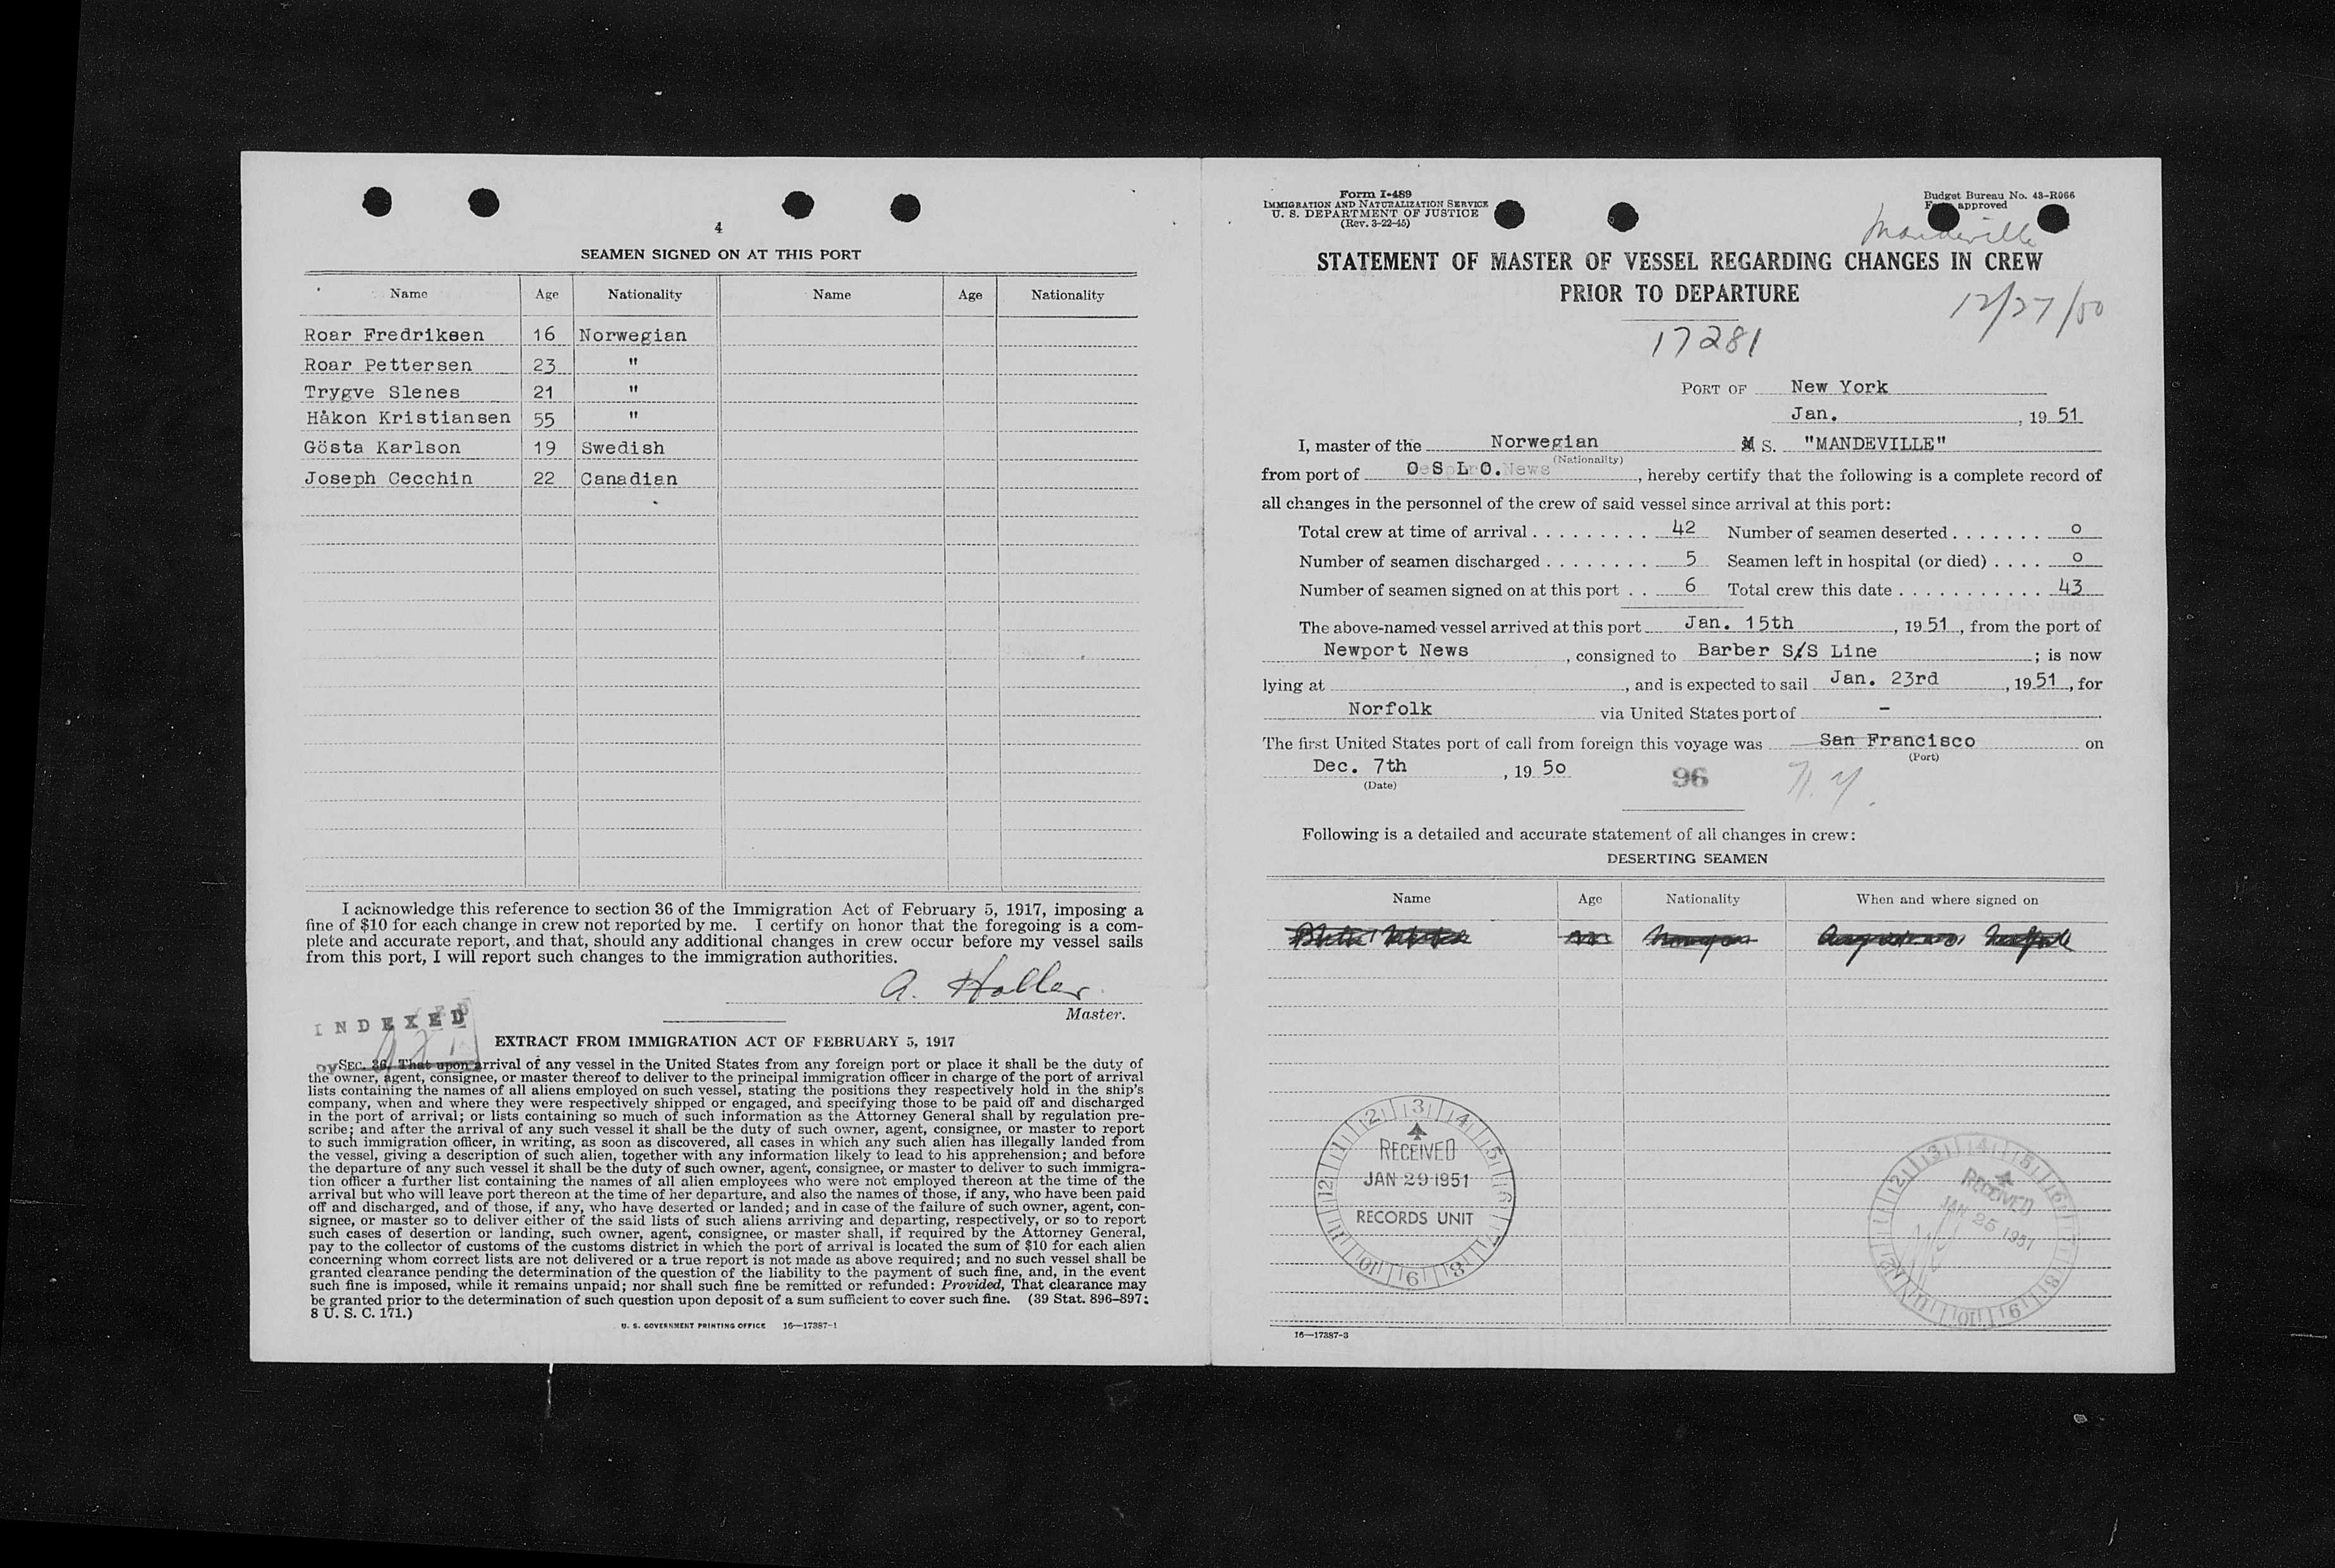 4
SEAMEN SIGNED ON AT THIS PORT
Name Age Nationality Name Age Nationality
Roar Fredriksen 16 Norwegian
Roar Pettersen 23 "
Trygve Slenes 21 "
Håkon Kristiansen 55 "
Gösta Karlson 19 Swedish
Joseph Cecchin 22 Canadian
I acknowledge this reference to section 36 of the Immigration Act of February 5, 1917, imposing a
fine of $10 for each change in crew not reported by me. I certify on honor that the foregoing is a com-
plete and accurate report, and that, should any additional changes in crew occur before my vessel sails
from this port, I will report such changes to the immigration authorities.
A. Holler
Master.
INDEXED
EXTRACT FROM IMMIGRATION ACT OF FEBRUARY 5, 1917
by SEC. 36. That upon arrival of any vessel in the United States from any foreign port or place it shall be the duty of
the owner, agent, consignee, or master thereof to deliver to the principal immigration officer in charge of the port of arrival
lists containing the names of all aliens employed on such vessel, stating the positions they respectively hold in the ship's
company, when and where they were respectively shipped or engaged, and specifying those to be paid off and discharged
in the port of arrival; or lists containing so much of such information as the Attorney General shall by regulation pre-
scribe; and after the arrival of any such vessel it shall be the duty of such owner, agent, consignee, or master to report
to such immigration officer, in writing, as soon as discovered, all cases in which any such alien has illegally landed from
the vessel, giving a description of such alien, together with any information likely to lead to his apprehension; and before
the departure of any such vessel it shall be the duty of such owner, agent, consignee, or master to deliver to such immigra-
tion officer a further list containing the names of all alien employees who were not employed thereon at the time of the
arrival but who will leave port thereon at the time of her departure, and also the names of those, if any, who have been paid
off and discharged, and of those, if any, who have deserted or landed; and in case of the failure of such owner, agent, con-
signee, or master so to deliver either of the said lists of such aliens arriving and departing, respectively, or so to report
such cases of desertion or landing, such owner, agent, consignee, or master shall, if required by the Attorney General,
pay to the collector of customs of the customs district in which the port of arrival is located the sum of $10 for each alien
concerning whom correct lists are not delivered or a true report is not made as above required; and no such vessel shall be
granted clearance pending the determination of the question of the liability to the payment of such fine, and, in the event
such fine is imposed, while it remains unpaid; nor shall such fine be remitted or refunded: Provided, That clearance may
be granted prior to the determination of such question upon deposit of a sum sufficient to cover such fine. (39 Stat. 896-897;
8 U. S. C. 171.)
U. S. GOVERNMENT PRINTING OFFICE 16—17387-1
Form I-489
IMMIGRATION AND NATURALIZATION SERVICE
U. S. DEPARTMENT OF JUSTICE
(Rev. 3-22-45)
Budget Bureau No. 43-R066
approved
Mandeville
STATEMENT OF MASTER OF VESSEL REGARDING CHANGES IN CREW
PRIOR TO DEPARTURE
12/27/50
17281
PORT OF New York
Jan. , 19 51
I, master of the Norwegian M S. "MANDEVILLE"
(Nationality)
from port of OSLO. , hereby certify that the following is a complete record of
all changes in the personnel of the crew of said vessel since arrival at this port:
Total crew at time of arrival . . . . . . . . . 42 Number of seamen deserted . . . . . . . 0
Number of seamen discharged . . . . . . . . 5 Seamen left in hospital (or died) . . . . 0
Number of seamen signed on at this port . . 6 Total crew this date . . . . . . . . . . . 43
The above-named vessel arrived at this port Jan. 15th , 19 51 , from the port of
Newport News , consigned to Barber S/S Line ; is now
lying at , and is expected to sail Jan. 23rd , 19 51 , for
Norfolk via United States port of -
The first United States port of call from foreign this voyage was San Francisco on
(Port)
Dec. 7th , 19 50 96 N. Y.
(Date)
Following is a detailed and accurate statement of all changes in crew:
DESERTING SEAMEN
Name Age Nationality When and where signed on
RECEIVED
JAN 29 1951
RECORDS UNIT
RECEIVED
JAN 25 1951
16—17387-3